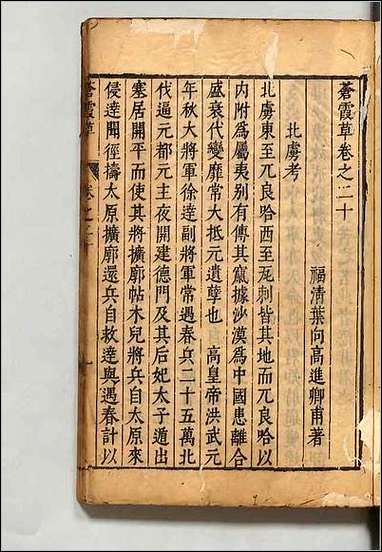 蒼霞草卷之二十
福清葉向高進卿甫著
北虜考
北虜東至兀良哈西至瓦剌皆其地而兀良哈以
内附為屬夷别有傳其竄據沙漠為中國患離合
盛衰代變靡常大抵元遺孽也　高皇帝洪武元
年秋大將軍徐達副將軍常遇春兵二十五萬北
伐逼元都元主夜開建德門及其后妃太子遁出
塞居開平而使其將擴廓帖木兒將兵自太原來
侵達聞徑擣太原擴廓還兵自救達與遇春計以
蒼霞草
卷之二十
一